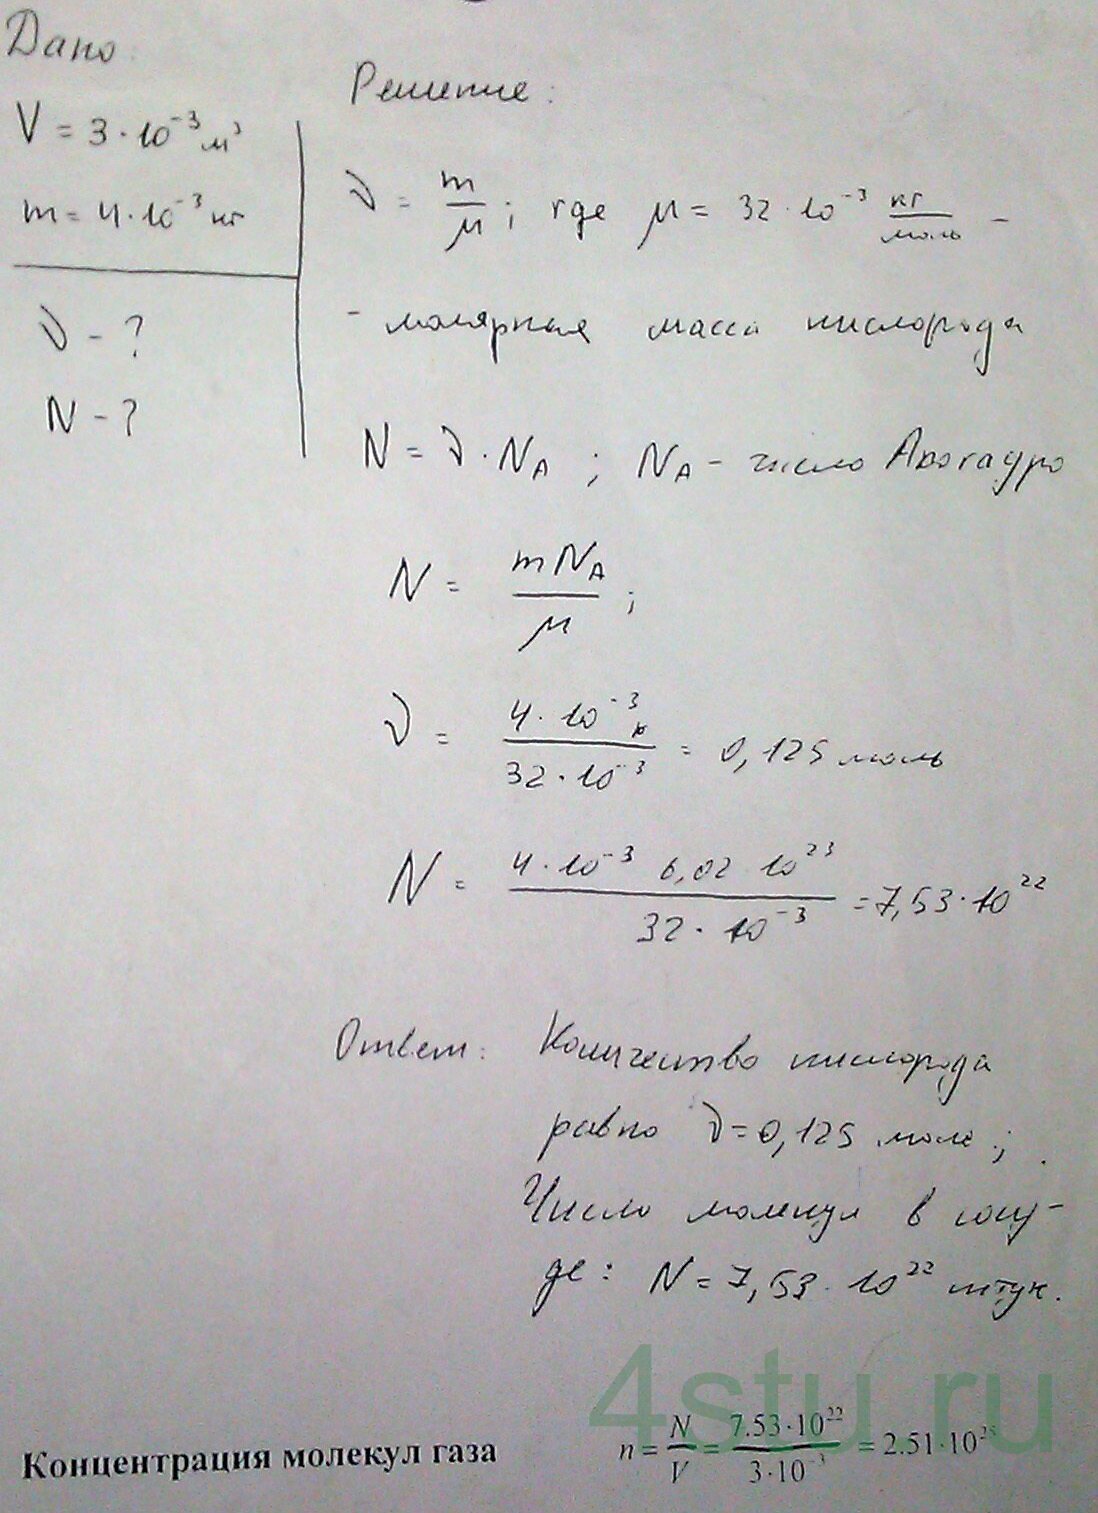 Дано
V = 3·10⁻³ м³
m = 4·10⁻³ кг
ν - ?
N - ?
Решение:
ν = m/μ; где μ = 32·10⁻³ кг/моль -
- молярная масса кислорода
N = ν·N_A ; N_A - число Авогадро
N = mN_A/μ ;
ν = 4·10⁻³/32·10⁻³ = 0,125 моль
N = 4·10⁻³ 6,02·10²³/32·10⁻³ = 7,53·10²²
Ответ: Количество кислорода
равно ν = 0,125 моль;
Число молекул в сосу-
де: N = 7,53·10²² штук.
4stu.ru
Концентрация молекул газа n = N/V = 7.53·10²²/3·10⁻³ = 2.51·10²⁵